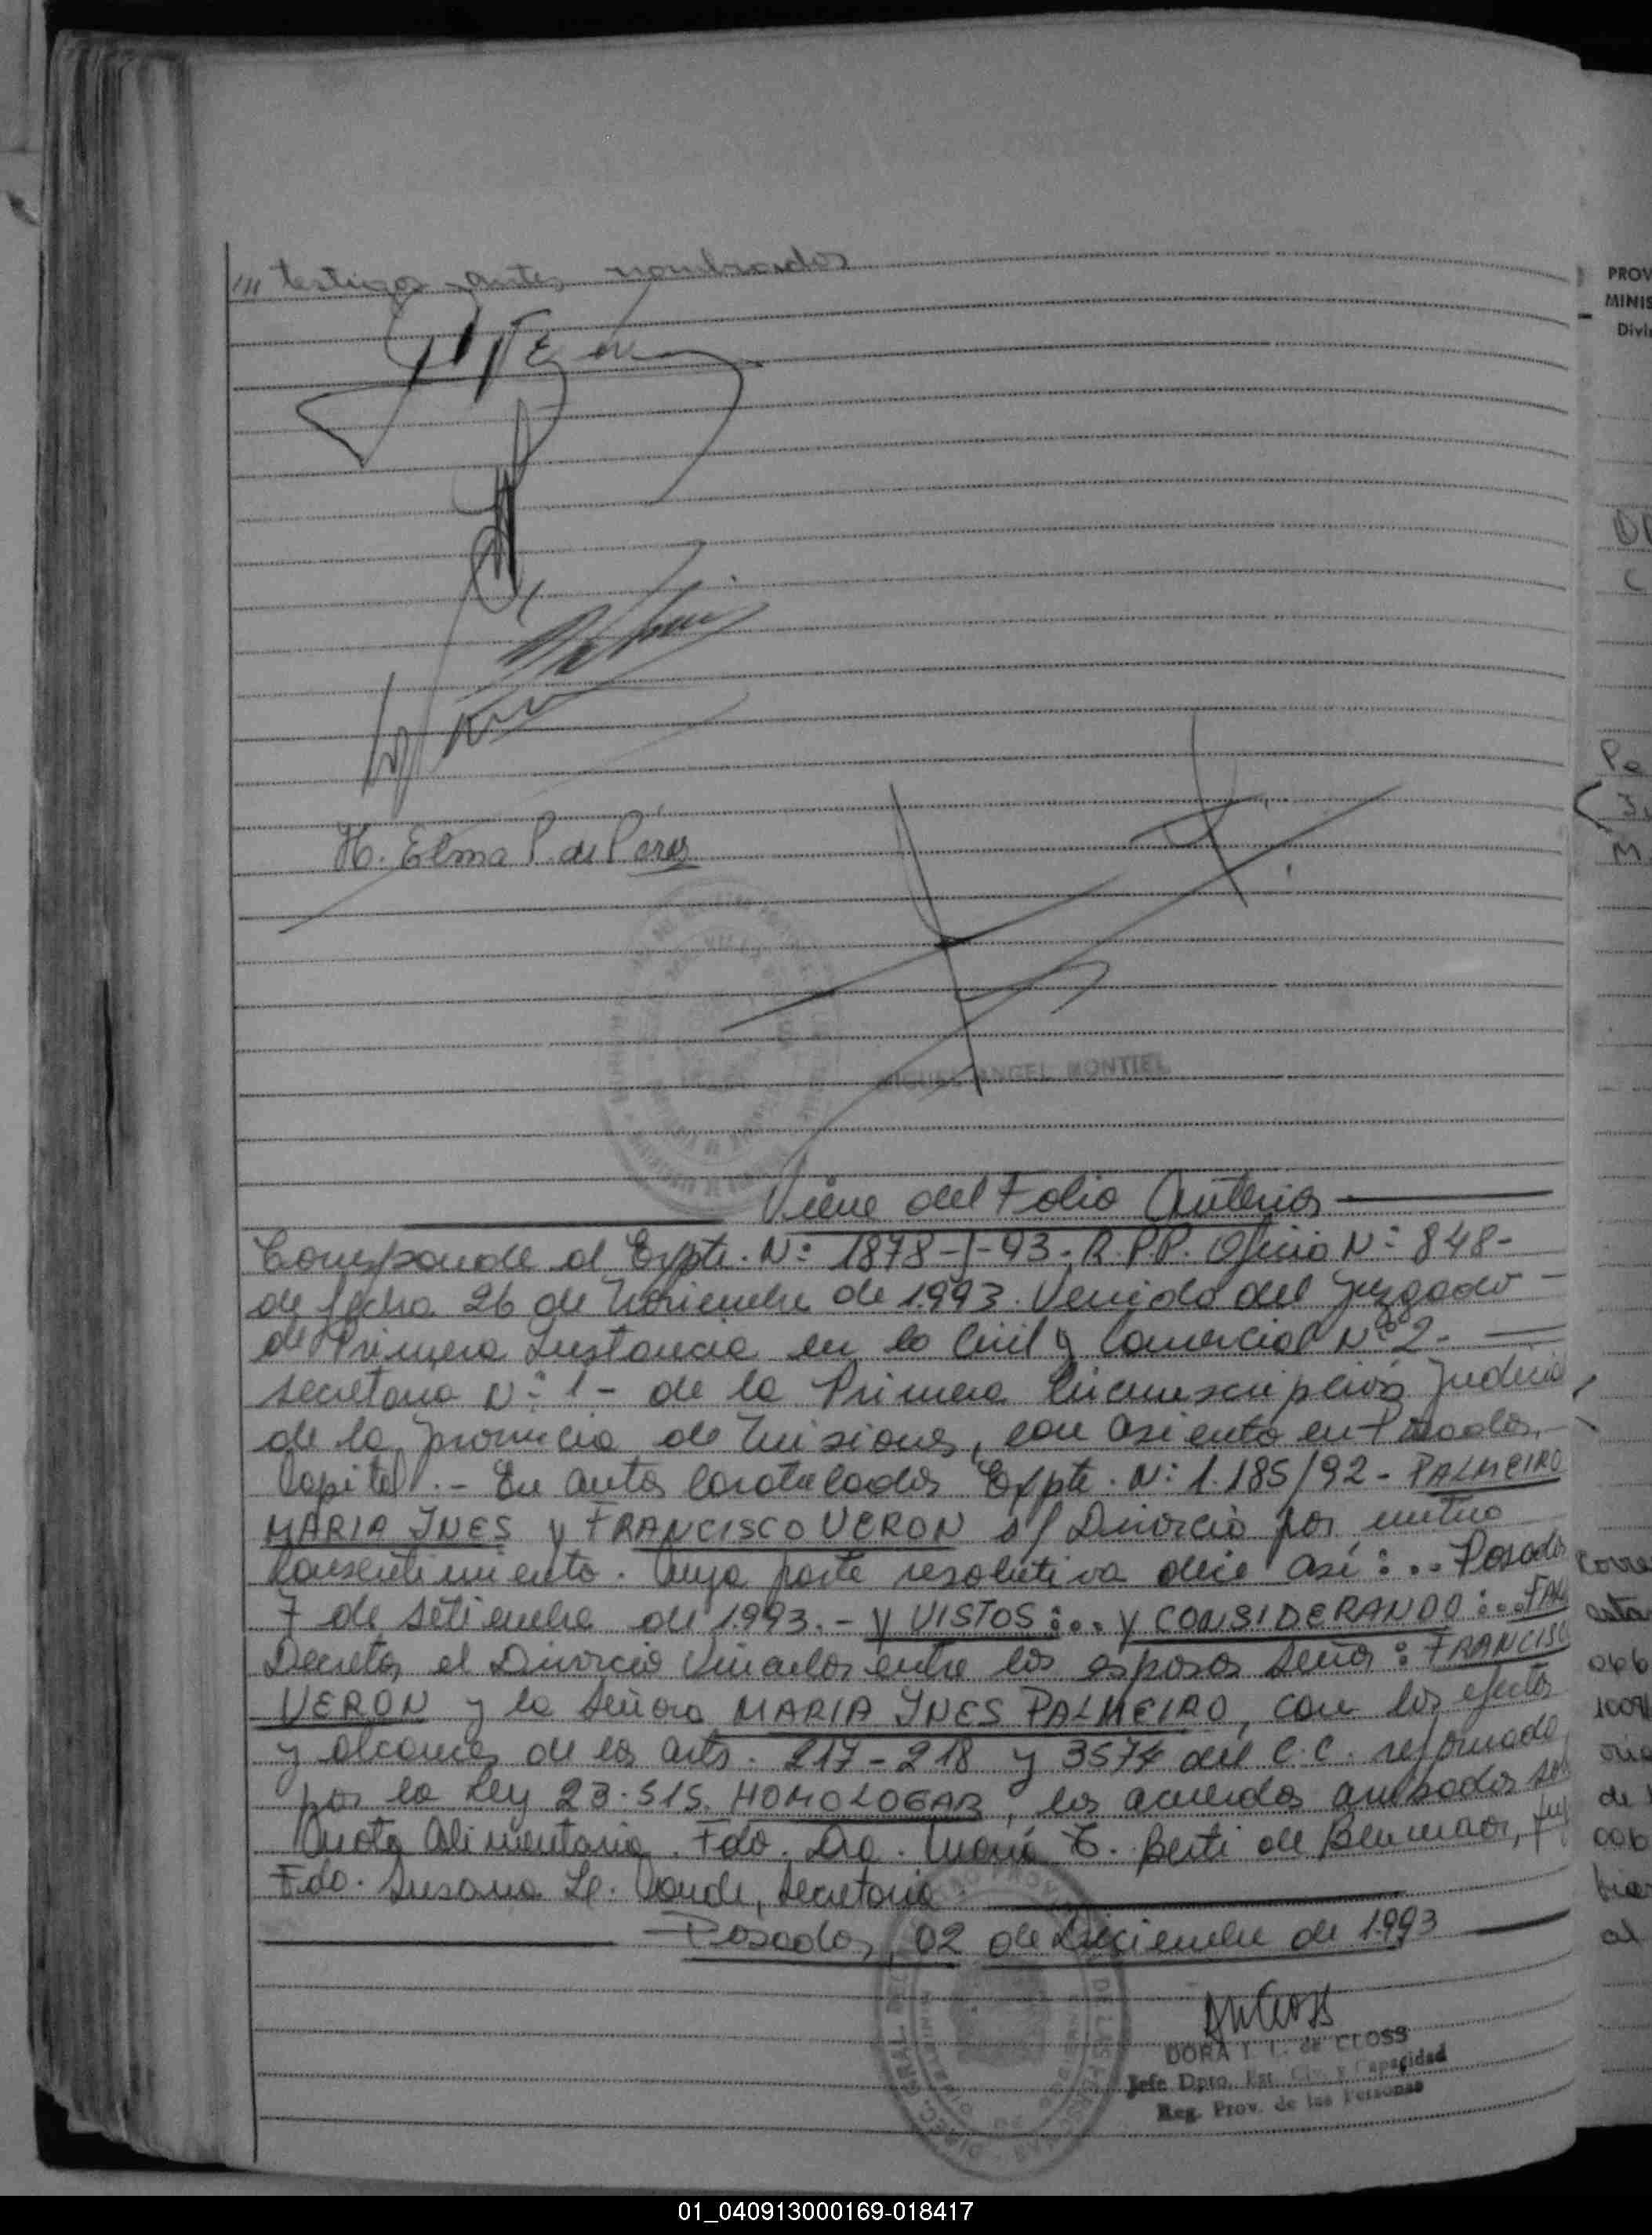 /// testigos antes nombrados
H. Elma P. de Pérez
MIGUEL ANGEL MONTIEL
Viene del Folio Anterior
Corresponde al Expte. Nº 1878-J-93. R.P.P. Oficio Nº 848-
de fecha 26 de Noviembre de 1.993. Venido del Juzgado
de Primera Instancia en lo Civil y Comercial Nº 2.
Secretaria Nº 1 - de la Primera Circunscripción Judicial
de la provincia de Misiones, con asiento en Posadas,
Capital. - En autos Caratulados Expte. Nº 1.185/92 - PALMEIRO
MARIA INES y FRANCISCO VERON s/ Divorcio por mutuo
Consentimiento. Cuya parte resolutiva dice así: .. Posadas
7 de Setiembre de 1.993. - Y VISTOS: ... y CONSIDERANDO: ... FALLO
Decretar el Divorcio Vincular entre los esposos Señor: FRANCISCO
VERON y la Señora MARIA INES PALMEIRO, con los efectos
y alcances de los arts. 217 - 218 y 3574 del C.C. reformado
por la Ley 23.515. HOMOLOGAR, los acuerdos arribados
Cuota Alimentaria. Fdo. Dra. María E. Berti de
Fdo. Susana Secretaria
Posadas, 02 de Diciembre de 1.993
DORA I. L. de CLOSS
Jefe Dpto. Est. Civ. y Capacidad
Reg. Prov. de las Personas
PROV
MINIS
Divi
01_040913000169-018417